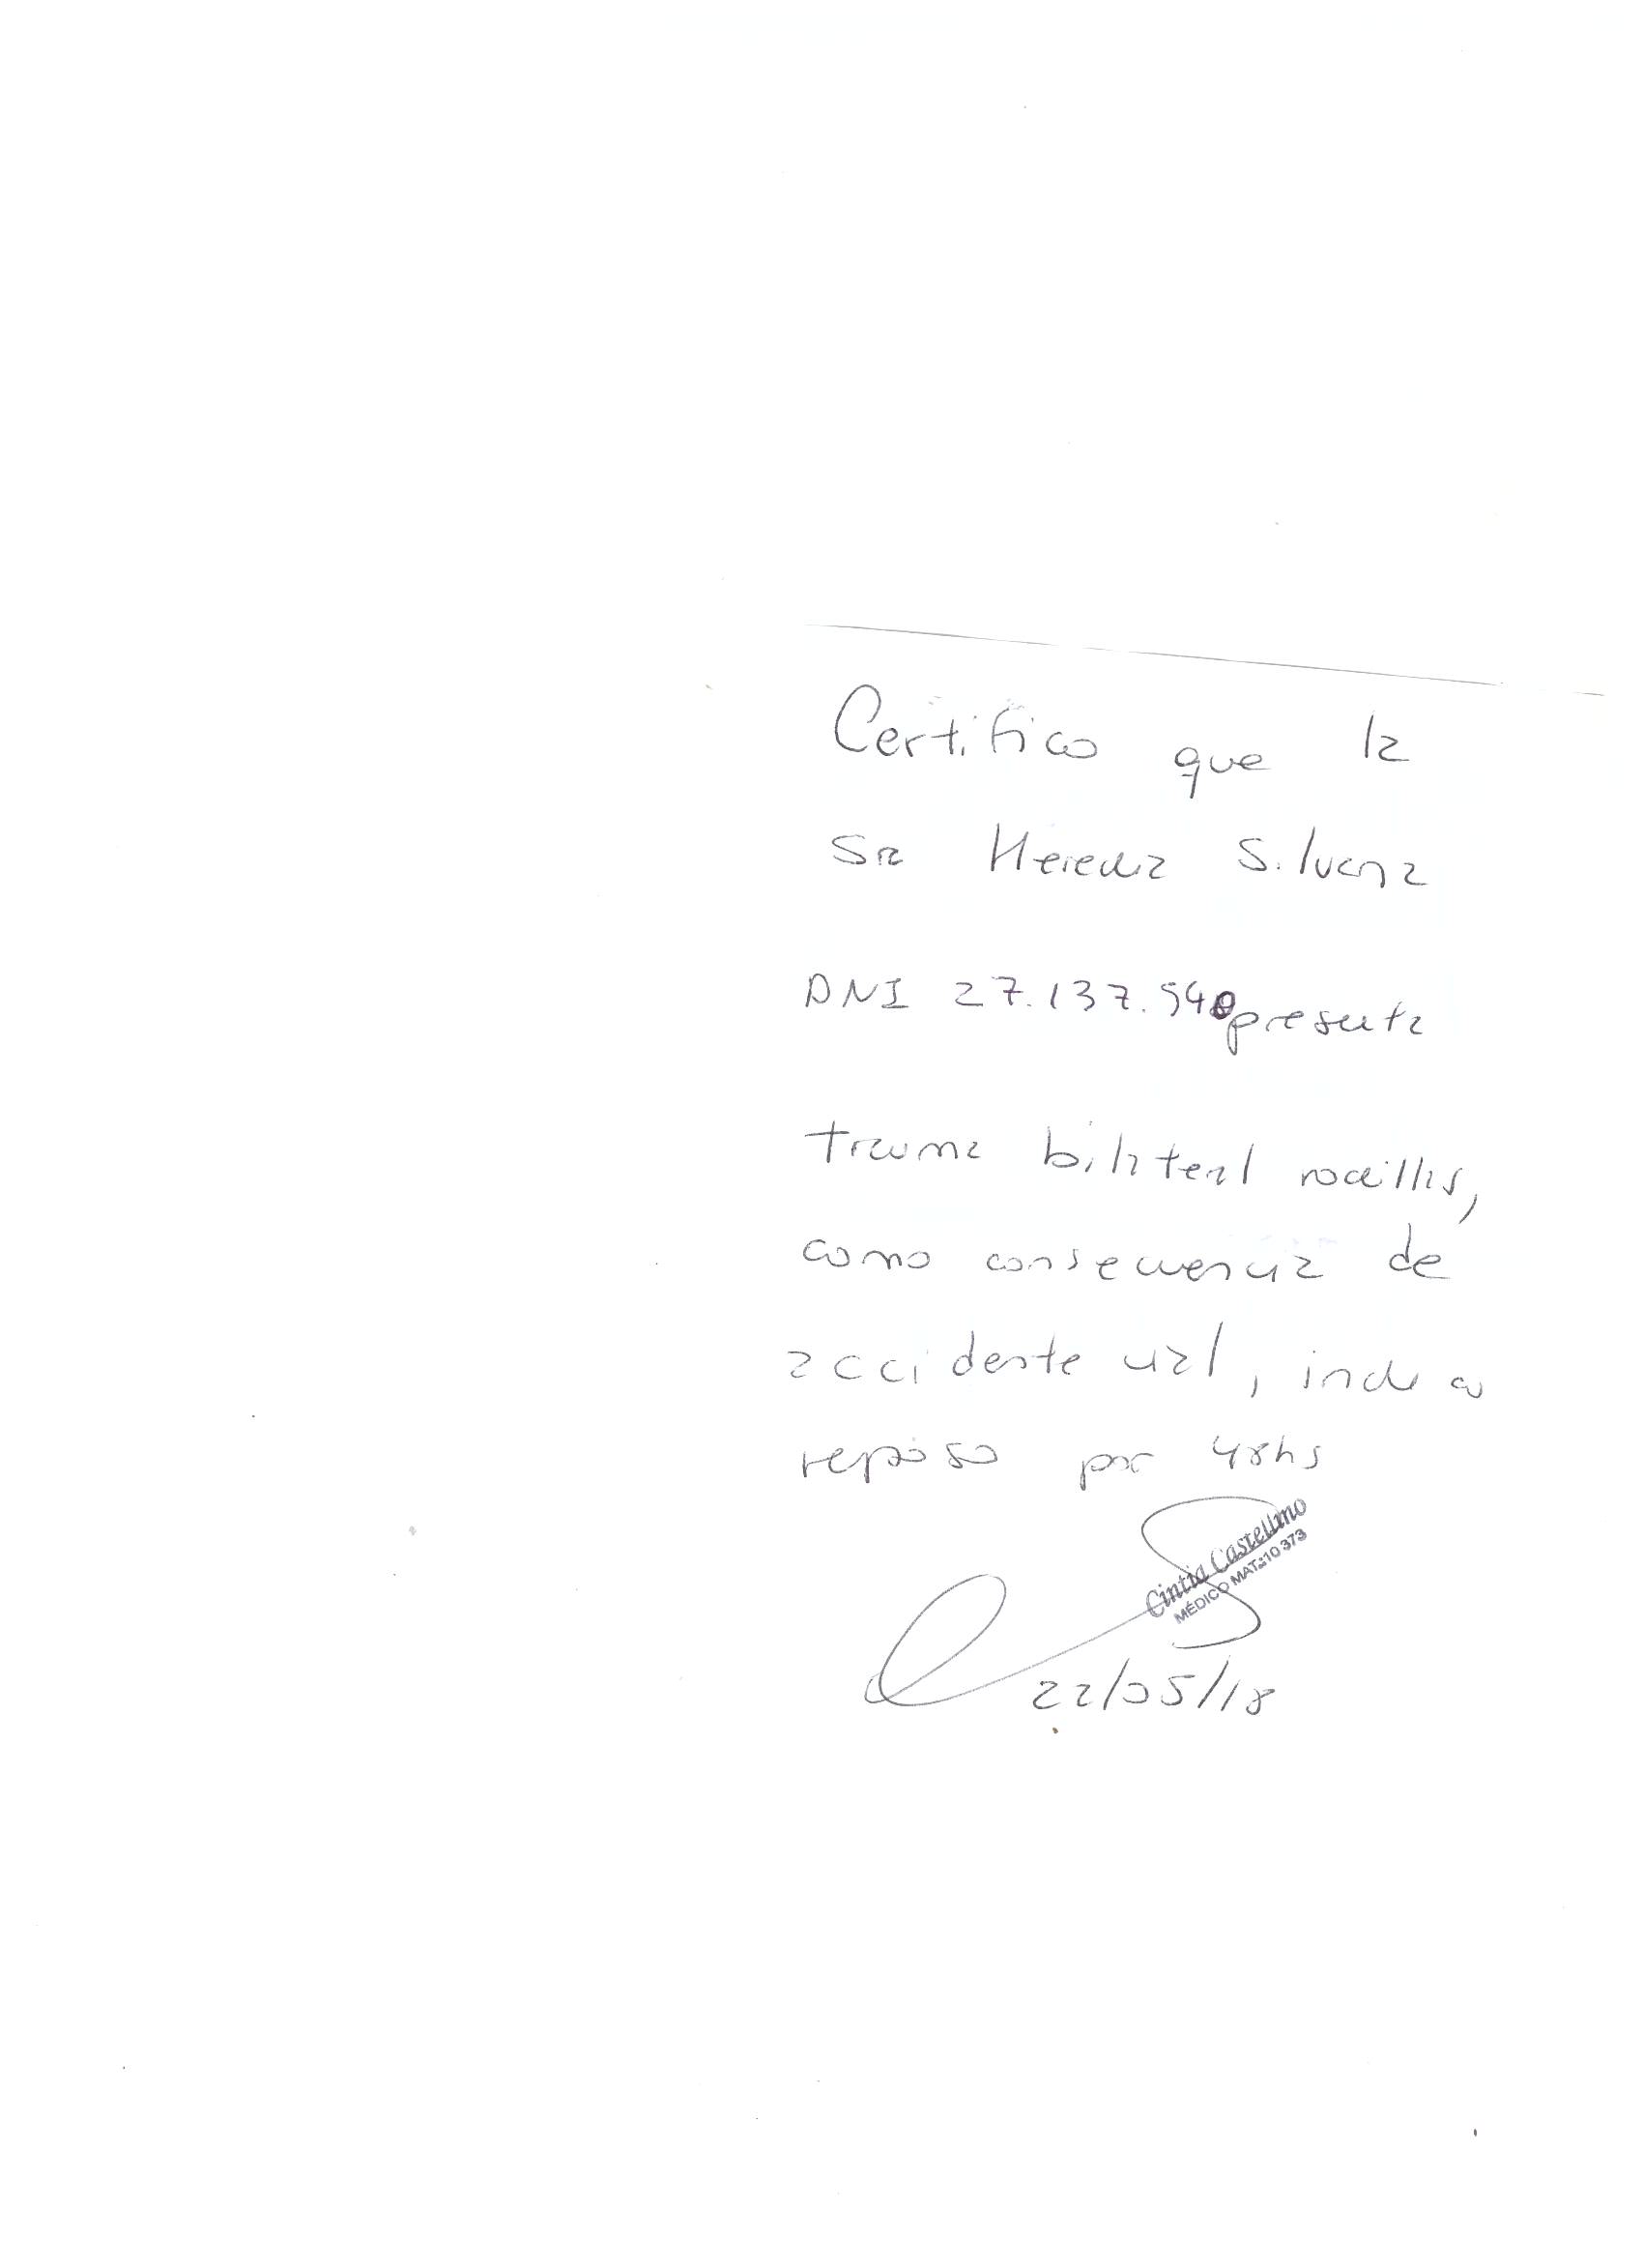 Certifico que la
Sra Heredia Silvana
DNI 27.137.940 presenta
trauma bilateral rodillas,
como consecuencia de
accidente vial, indico
reposo por 48hs
Cintia Castellino
MÉDICO MAT:10 373
22/05/18